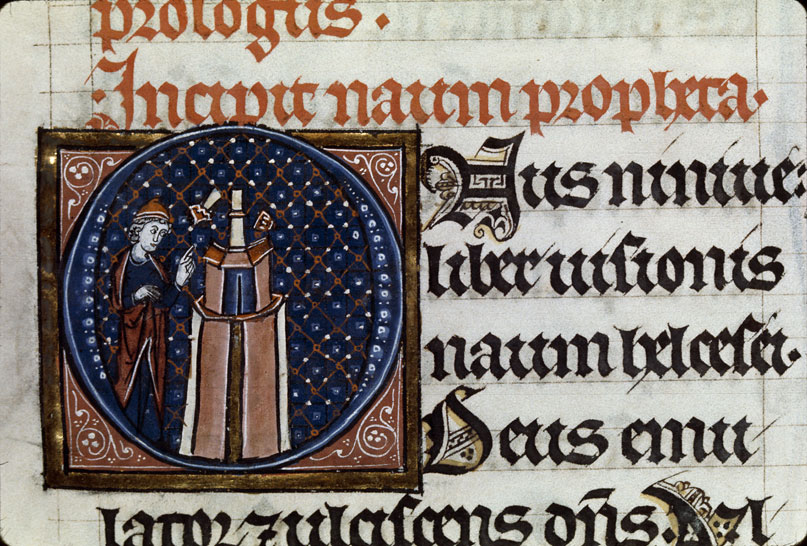 prologus.
Incipit naum propheta.
ONus niniue:
liber uisionis
naum helcesei.
Deus emu
lator ⁊ ulciscens dn̄s.